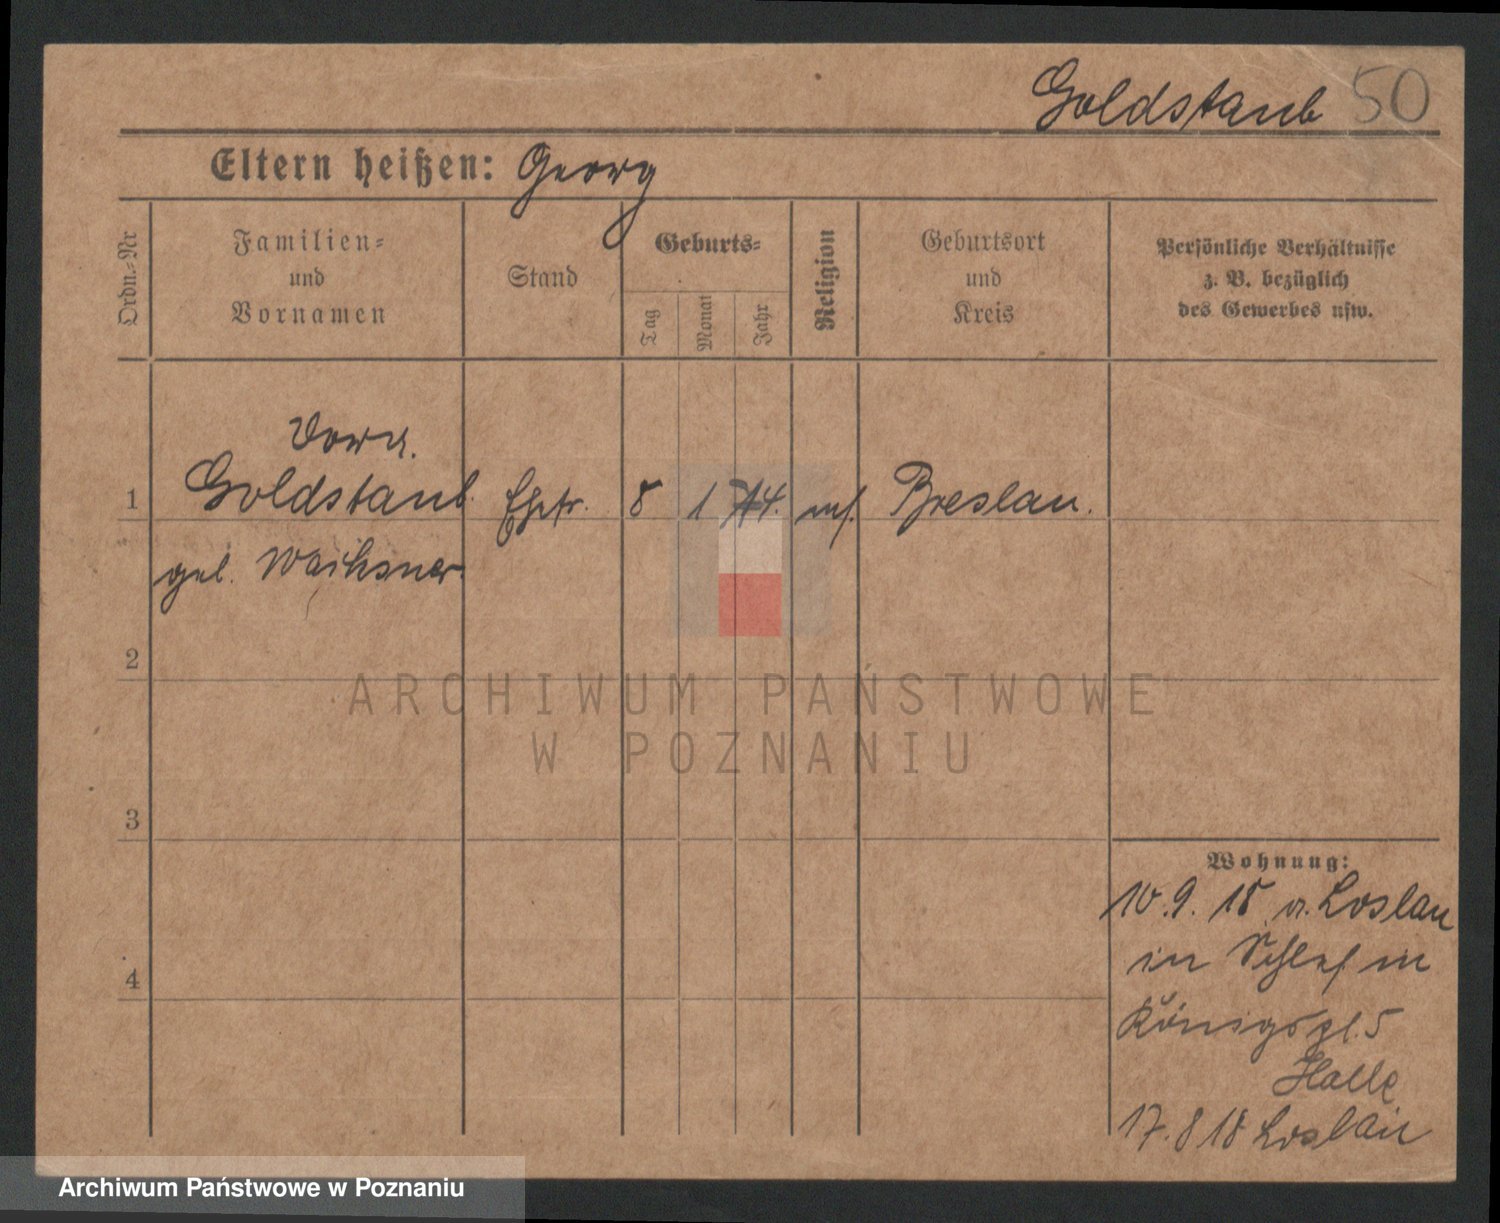 Goldstaub 50
Eltern heißen: Georg
Ordn.-Nr
Familien-
und
Vornamen
Stand
Geburts-
Tag
Monat
Jahr
Religion
Geburtsort
und
Kreis
Persönliche Verhältnisse
z. B. bezüglich
des Gewerbes usw.
Dora.
1 Goldstaub. Ehefr. 8 1 74. Breslau.
geb. Wachsner
2
3
4
ARCHIWUM PAŃSTWOWE
W POZNANIU
Wohnung:
10.9.18 a. Loslau
in Schles. in
Königspl. 5
Halle
17.8 18 Loslau
Archiwum Państwowe w Poznaniu